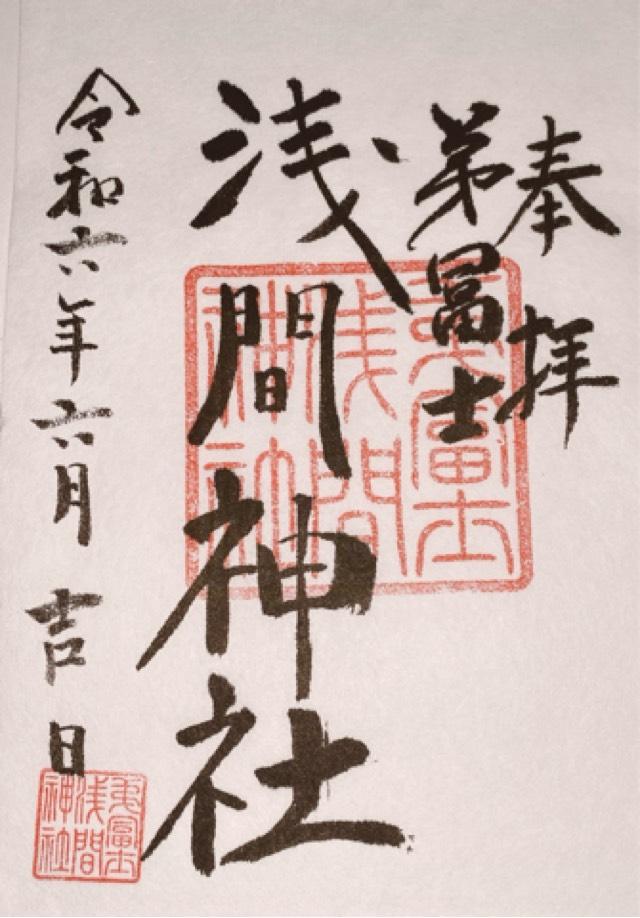 奉拝
弟冨士
浅間神社
令和六年六月吉日
弟富士
浅間
神社
弟冨士
浅間
神社